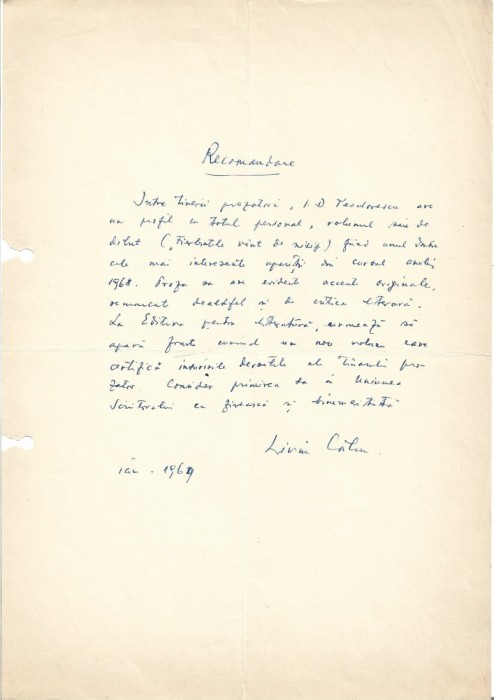 Recomandare
Între tinerii prozatori, I. D Teodorescu are
un profil cu totul personal, volumul său de
debut („ vînt de ") fiind unul dintre
cele mai interesante apariții din cursul anului
1968. Proza sa are evident accent originale,
remarcat dealtfel și de critica literară.
La Editura pentru literatură, urmează să
apară foarte curînd un nou volum care
certifică însușirile deosebite ale tînărului pro-
zator. Consider primirea sa în Uniunea
Scriitorilor ca firească și binemeritată
Liviu Călin
ian - 1969